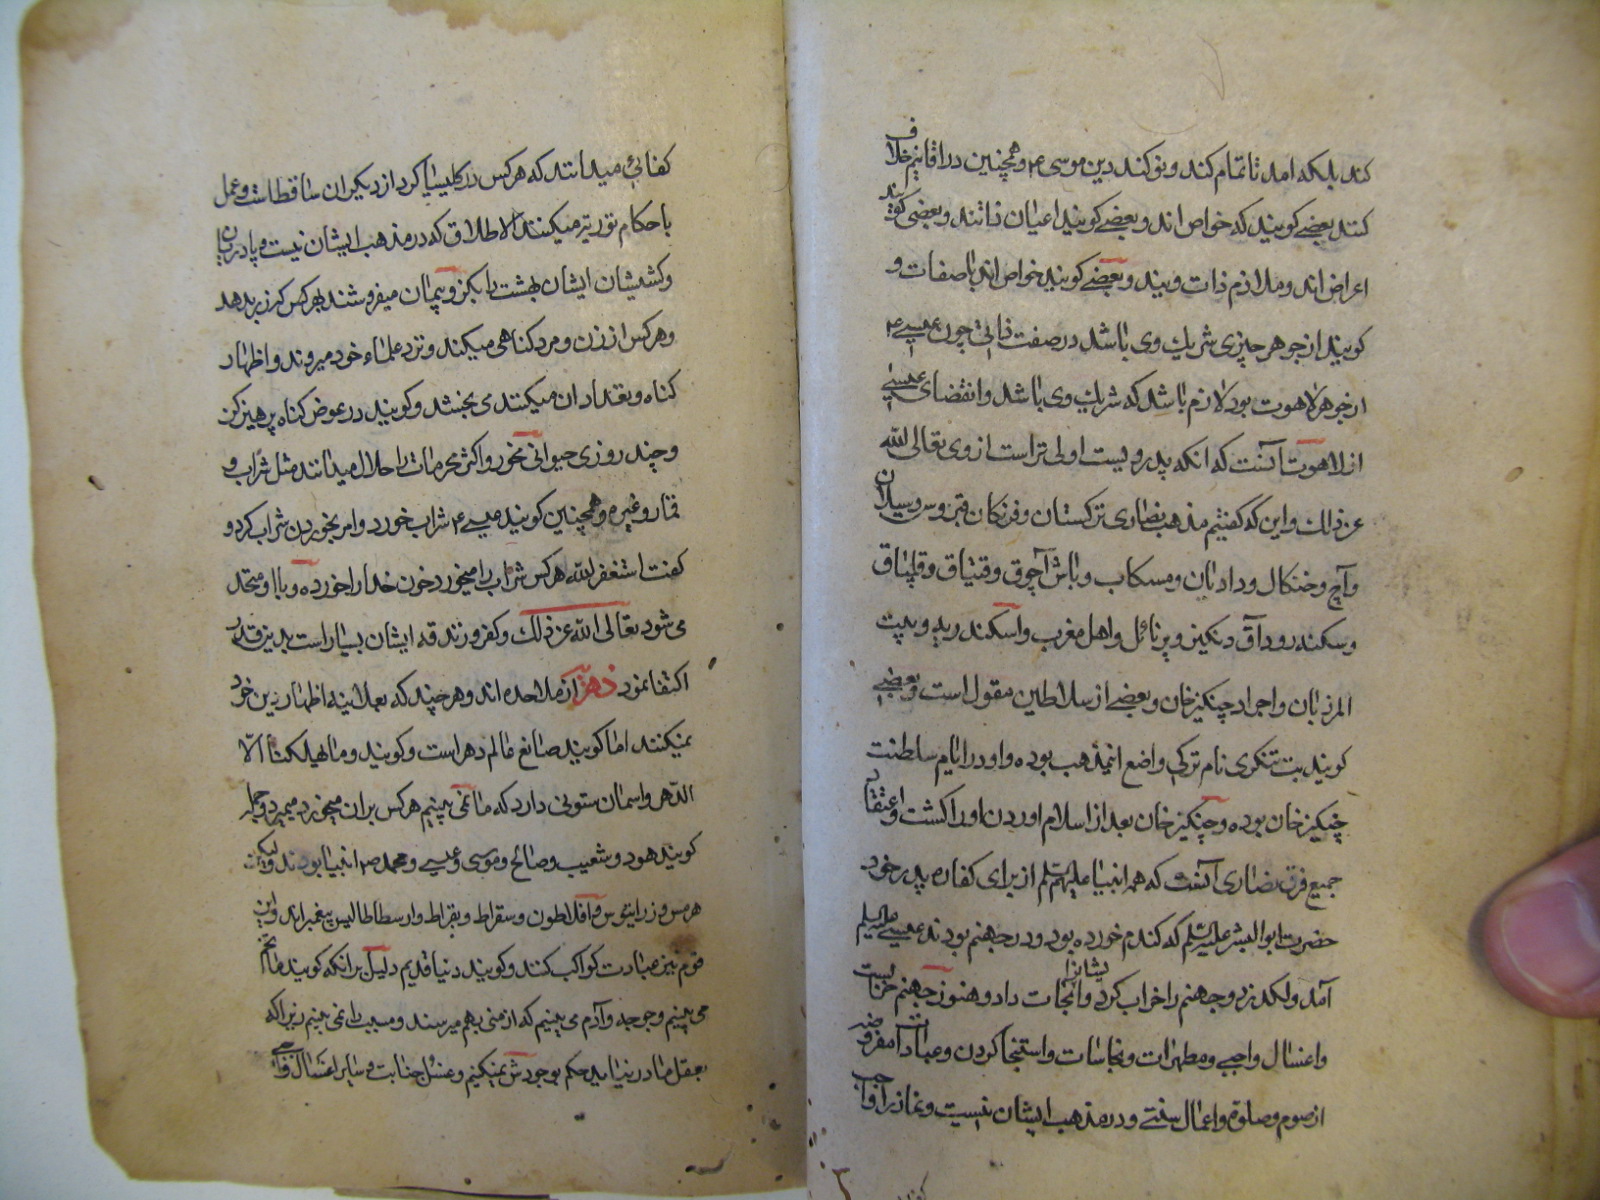 کند بلکه امد تا تمام کند و نو کند دین موسی ع و همچنین در اقانیم خلاف
کنند بعضی کویند که خواص اند و بعضی کویند اعیان ذاتند و بعضی کویند
اعراض اند و ملازم ذات ویند و بعضی کویند خواص اند باصفات و
کویند از جوهر چیزی شریك وی باشد در صفت ذاتی چون عیسی ع
از جوهر لاهوت بود لازم باشد که شریك وی باشد و انقضای عیسی
از لاهوت آنست که انکه پدر ویست اولی تر است از وی تعالی الله
عن ذالك و این که کفتیم مذهب نصاری ترکستان و فرنکان و روس
و آچ و و دادیان و و باش آچوق و و
و و و اهل مغرب و
المرزبان و اجداد چنکیزخان و بعضی از سلاطین مقول است و بعضی
کویند بت تنکری نام ترکی واضع اینمذهب بوده و او در ایام سلطنت
چنکیز خان بوده و چنکیز خان بعد از اسلام اوردن او را کشت و اعتقاد
جمیع فرق نصاری آنست که همه انبیا علیهم السلم از برای کفاره پدر خود
حضرت ابو البشر علیه السلم که کندم خورده بود در جهنم بودند عیسی علیه السلم
آمد و لکد زد و جهنم را خراب کرد و ایشانرا نجات داد و هنوز جهنم خرابست
و اغتسال واجبی و مطهرات و نجاسات و استنجا کردن و عبادات مفروضه
از صوم و صلوة و اعمال سنتی و در مذهب ایشان نیست و نماز را واجب
کفائی میدانند که هر کس در کلیسیا کرد از دیکران ساقط است و عمل
باحکام توریته میکنند الا طلاق که در مذهب ایشان نیست و پادریان
و کشیشان ایشان بهشت را بکز و پیمان میفروشند بهر کس که زر بدهد
و هر کس از زن و مرد کناهی میکند و نزد علماء خود میروند و اظهار
کناه و تعداد ان میکنند می بخشد و کویند در عوض کناه پرهیز کن
و چند روزی حیوانی مخور و اکثر محرمات را حلال میدانند مثل شراب و
قمار و غیره و همچنین کویند عیسی ع شراب خورد و امر بخوردن شراب کرد و
کفت استغفر الله هر کس شراب را میخورد خون خدا را خورده و با او متحد
می شود تعالی الله عن ذلك و کفر و زندقه ایشان بسیار است بدین قدر
اکتفا نمود از ملاحده اند و هر چند که بعلانیه اظهار دین خود
نمیکنند اما کویند صانع عالم دهر است و کویند و ما یهلکنا الّا
الدّهر و اسمان ستونی دارد که ما نمی بینیم هر کس بران میخورد میمیرد و جمله
کویند هود و شعیب و صالح و موسی و عیسی و محمد ص انبیا بودند و لیکن
هرمس و و افلاطون و سقراط و بقراط و ارسطاطالیس پیغمبراند و این
قوم نیز عبادت کواکب کنند و کویند دنیا قدیم دلیل برانکه کویند ما تخم
می بینیم و جوجه و آدم می بینیم که از منی بهم میرسند و مسبب را نمی بینیم زیراکه
بعقل ما در نیاید حکم بوجودش نمیکنیم و غسل جنابت و سایر اغسال واجبی